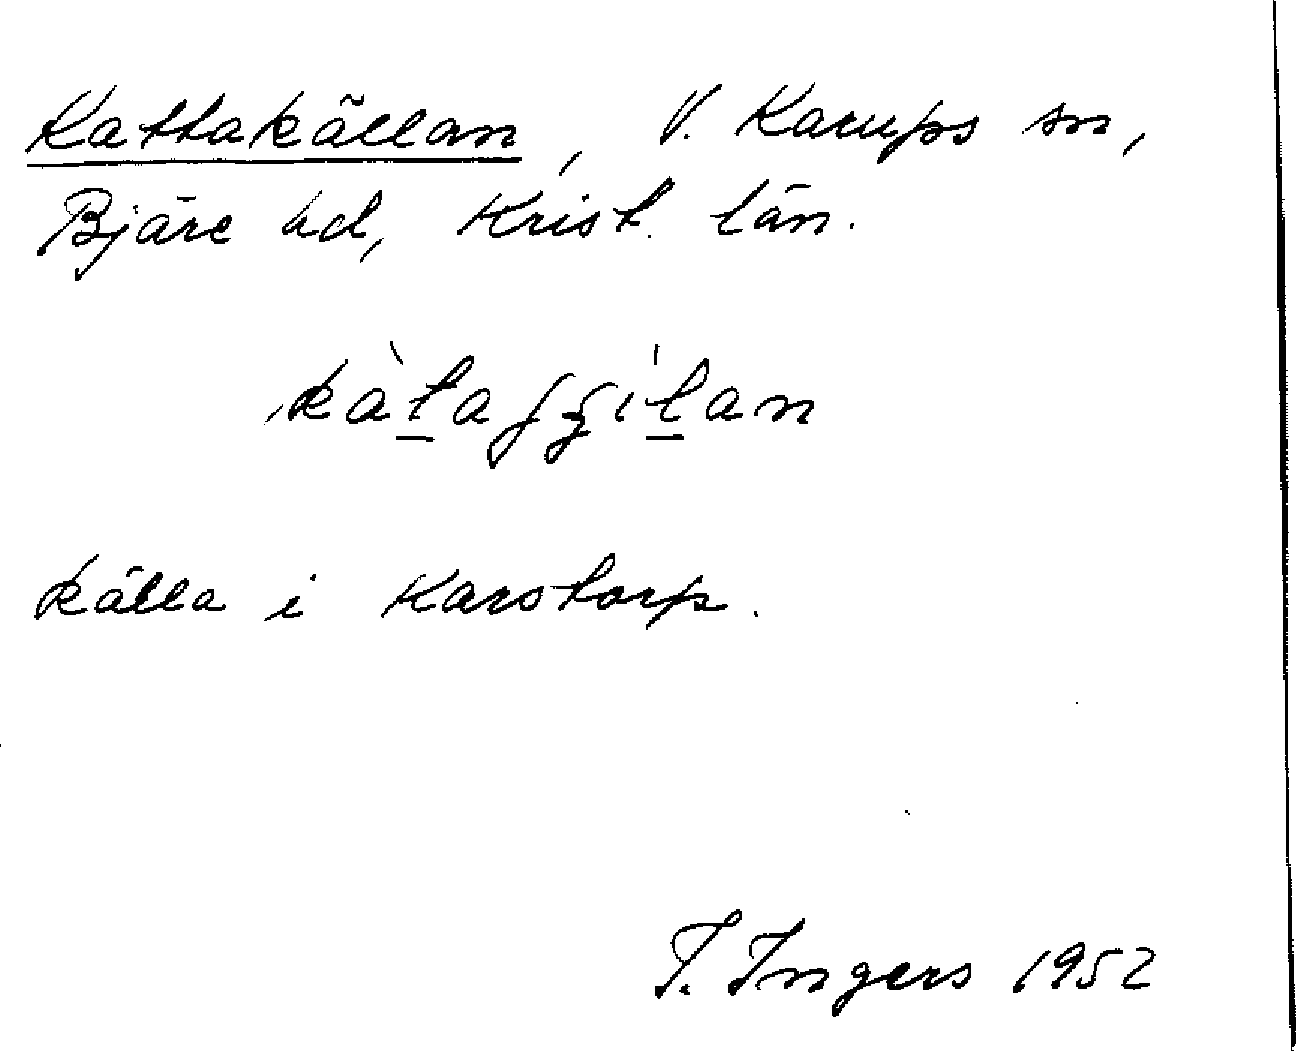 Kattakällan, V. Karups sn,
Bjäre hd, Krist. län.
källa i Karstorp.
I. Ingers 1952